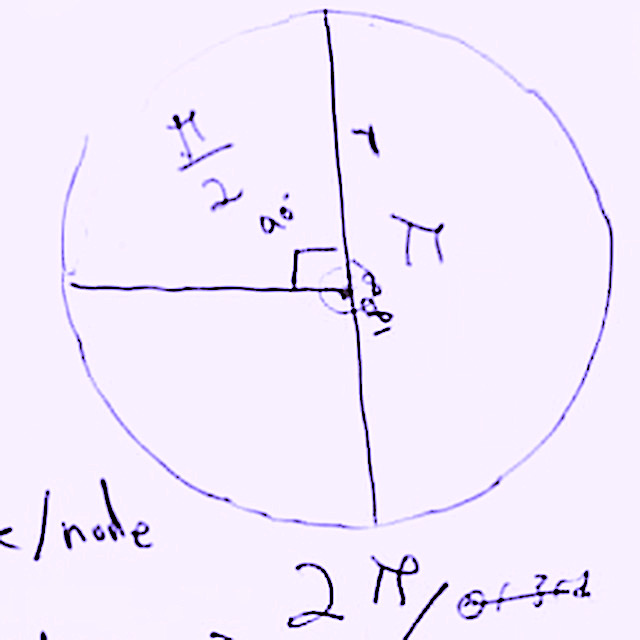 π/2
90°
r
π
180
/node
2π/